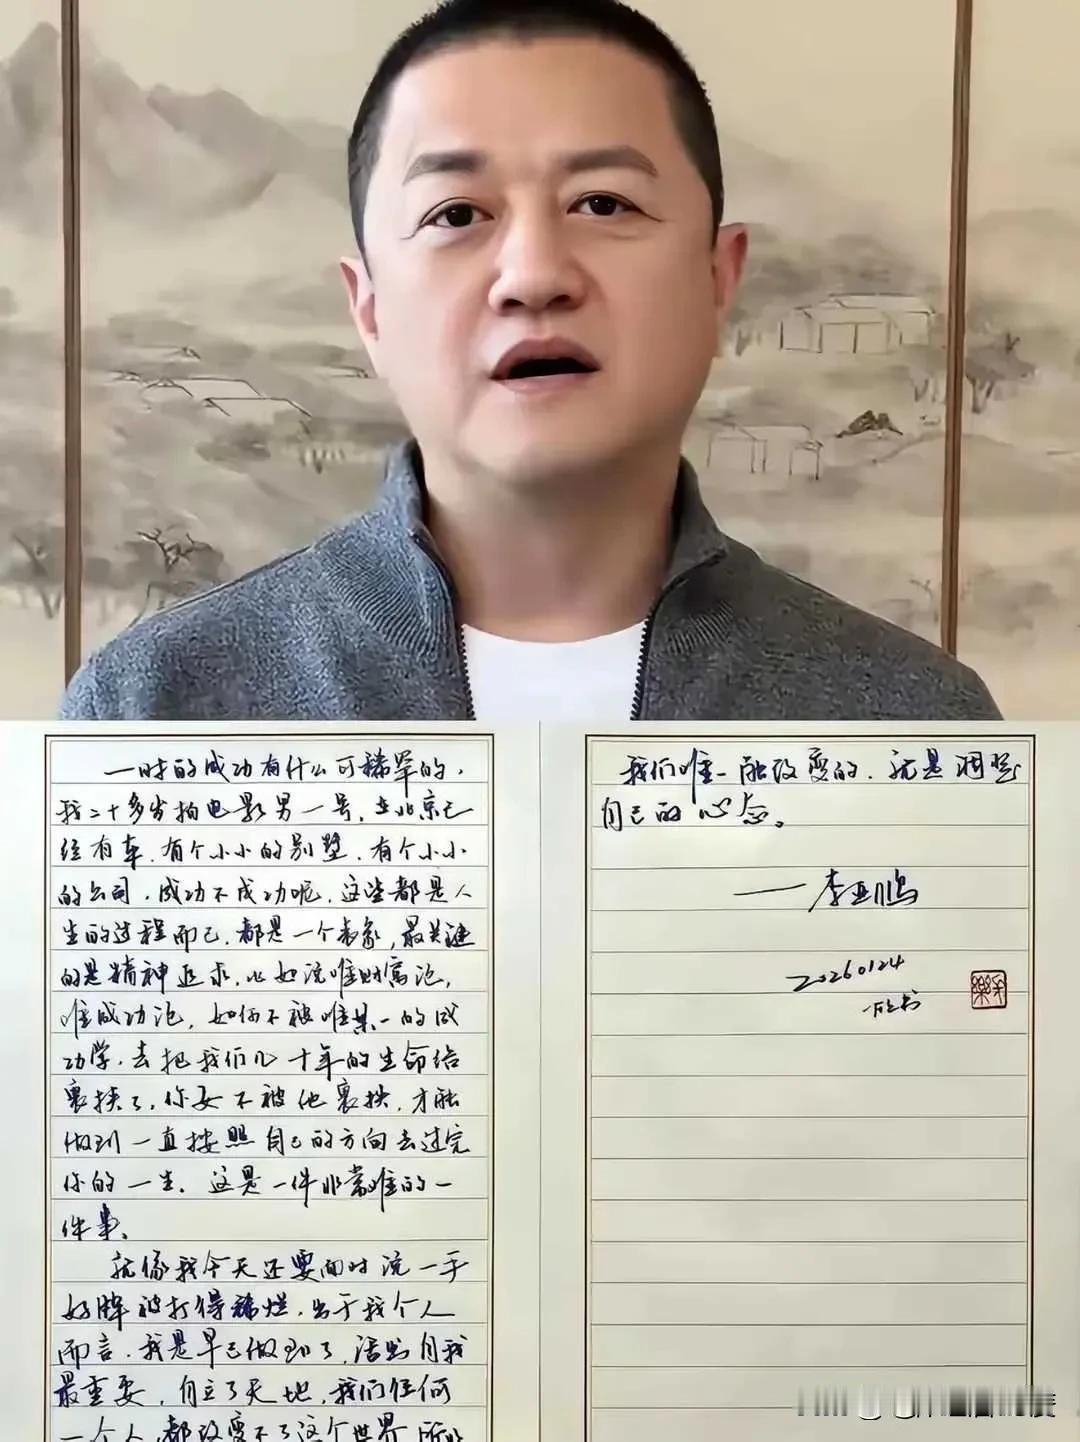 一时的成功有什么可稀罕的，
我二十多岁拍电影男一号，在北京已
经有车，有个小小的别墅，有个小小
的公司，成功不成功呢，这些都是人
生的过程而已，都是一个表象，最关键
的是精神追求，比如说唯财富论，
唯成功论，如何不被唯某一的成
功学，去把我们几十年的生命给
裹挟了，你要不被他裹挟，才能
做到一直按照自己的方向去过完
你的一生，这是一件非常难的一
件事。
就像我今天还要面对说一手
好牌被打得稀烂，出于我个人
而言，我是早已做到了，活出自我
最重要，自立了天地，我们任何
一个人，都改变不了这个世界
我们唯一能改变的，就是调整
自己的心态。
——李亚鹏
20260124